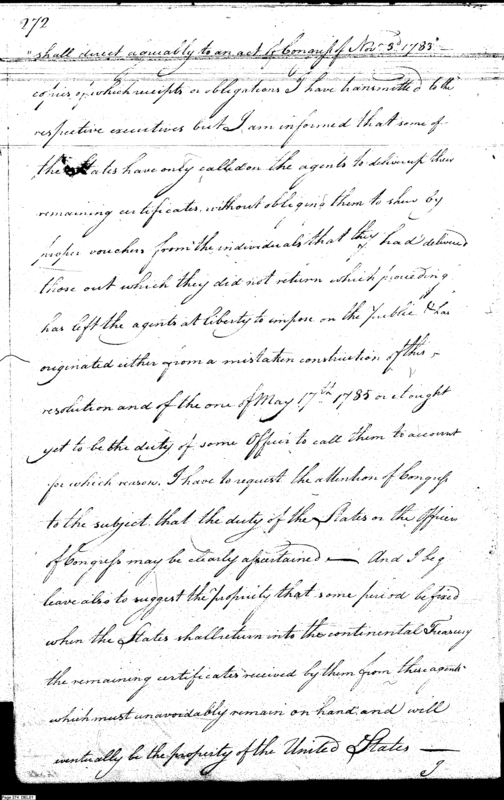 272
"shall direct agreeably to an act of Congress of Novr 3d 1783"
copies of which receipts or obligations I have transmitted to the
respective executives but I am informed that some of
the States have only called on the agents to deliver up their
remaining certificates, without obliging them to shew by
proper vouchers from the individuals that they had delivered
those out which they did not return which proceeding
has left the agents at liberty to impose on the public & has
originated either from a mistaken construction of this
resolution and of the one of May 17th 1785 or it ought
yet to be the duty of some Officer to call them to account
for which reason, I have to request the attention of Congress
to the subject that the duty of the States or the Officers
of Congress may be clearly ascertained — And I beg
leave also to suggest the propriety that some period be fixed
when the States shall return into the continental Treasury
the remaining certificates received by them from these agents
which must unavoidably remain on hand and will
eventually be the property of the United States —